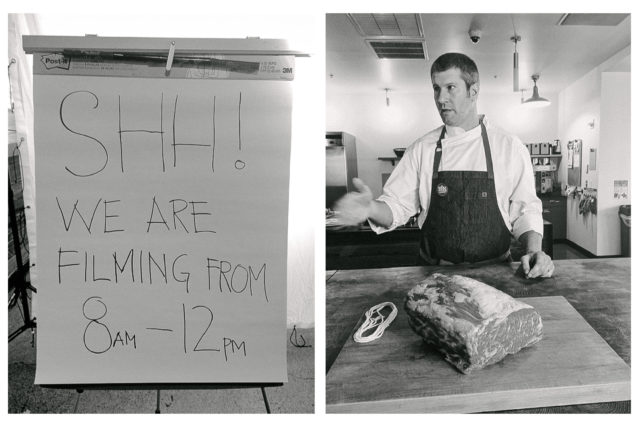 Post-it
3M
SHH!
WE ARE
FILMING FROM
8AM - 12PM